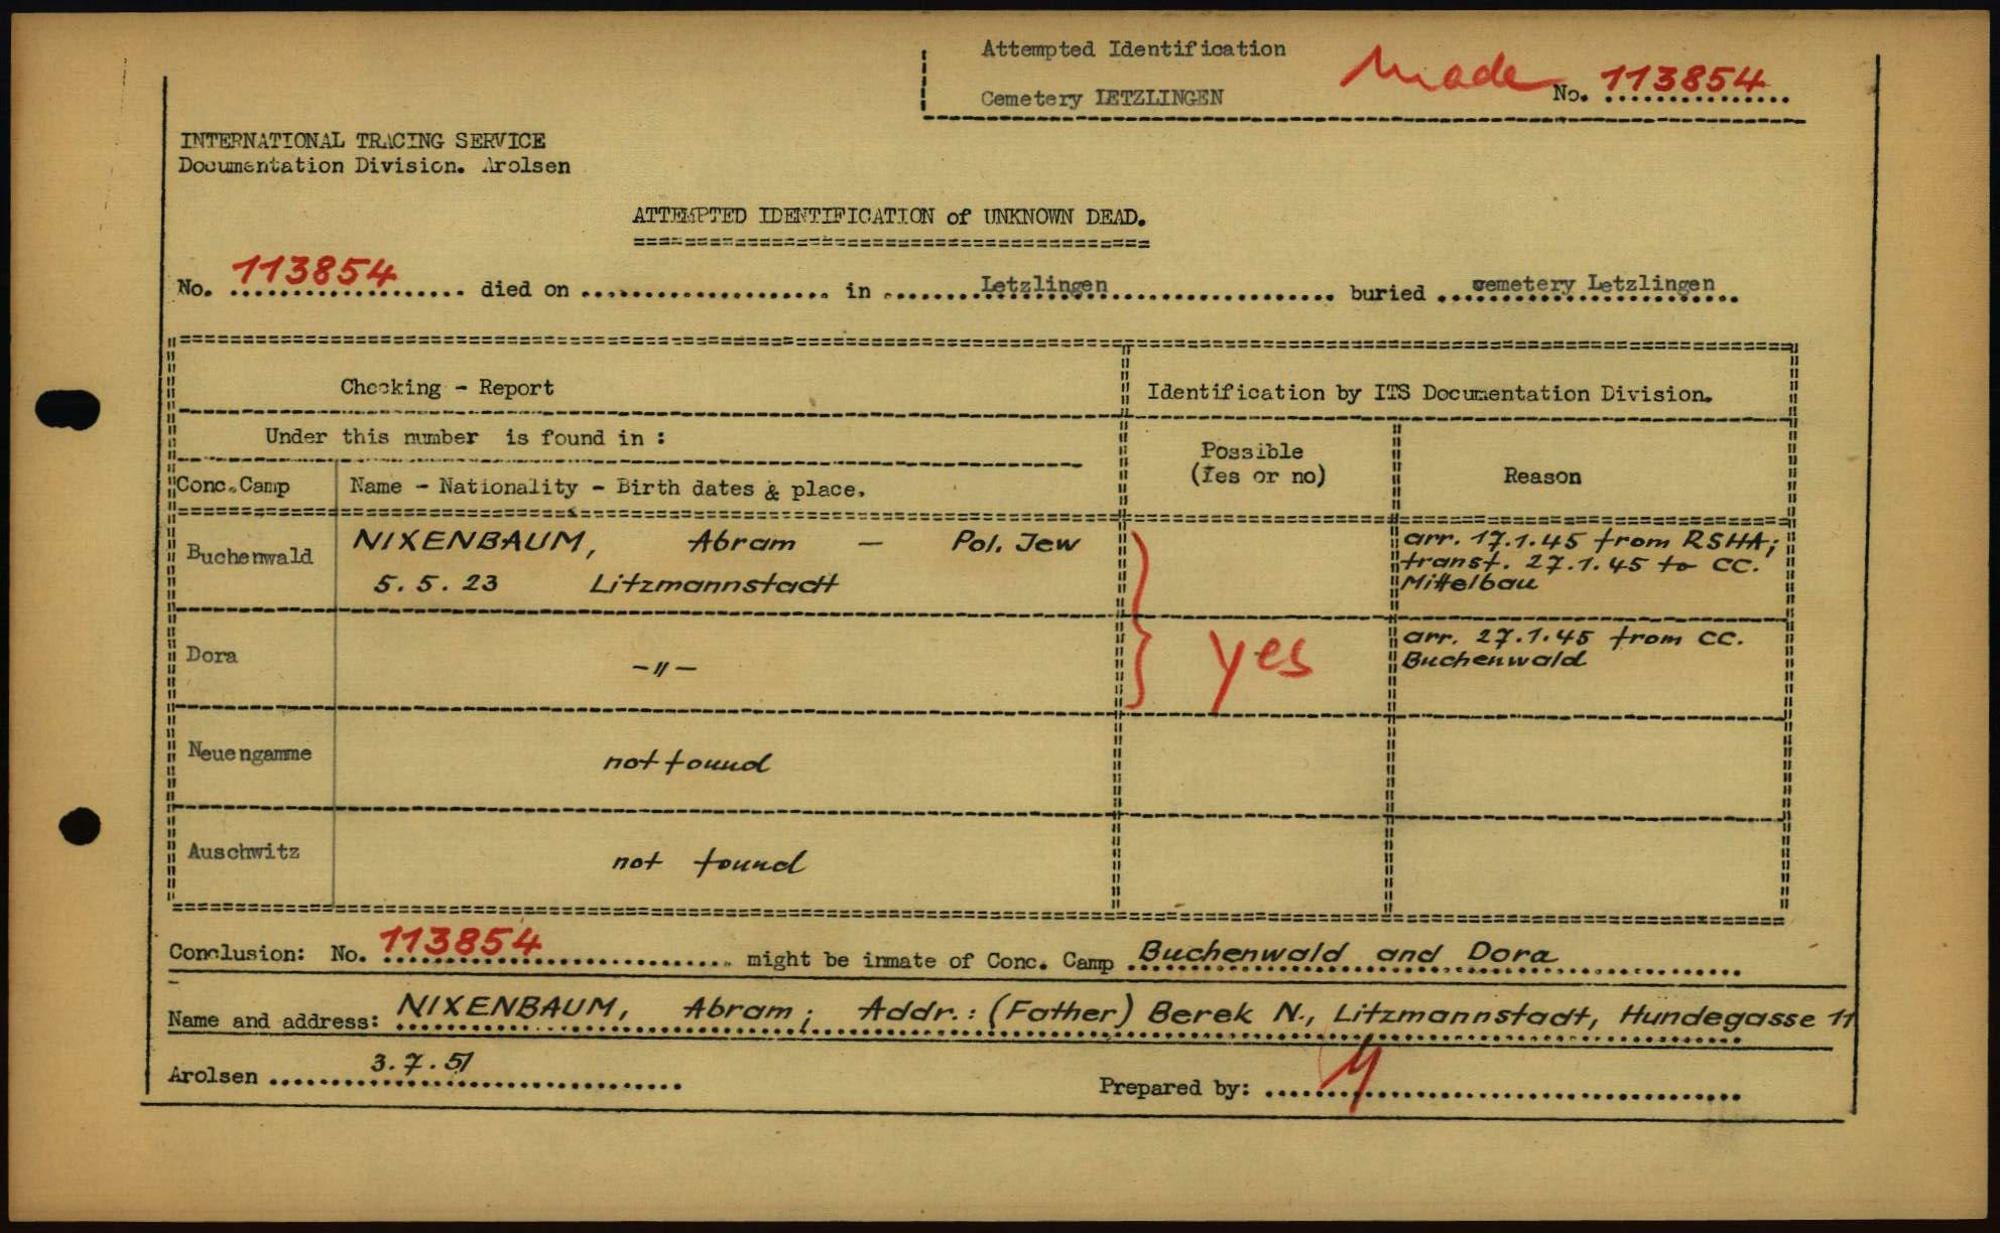 Attempted Identification
Made
Cemetery LETZLINGEN
No. 113854
INTERNATIONAL TRACING SERVICE
Documentation Division. Arolsen
ATTEMPTED IDENTIFICATION of UNKNOWN DEAD.
No. 113854 died on in Letzlingen buried cemetery Letzlingen
Checking - Report
Identification by ITS Documentation Division.
Under this number is found in :
Possible
(Yes or no)
Reason
Conc.Camp
Name - Nationality - Birth dates & place.
Buchenwald
NIXENBAUM, Abram — Pol. Jew
5.5.23 Litzmannstadt
arr. 17.1.45 from RSHA;
transf. 27.1.45 to CC.
Mittelbau
yes
Dora
-"-
arr. 27.1.45 from CC.
Buchenwald
Neuengamme
not found
Auschwitz
not found
Conclusion: No. 113854 might be inmate of Conc. Camp Buchenwald and Dora
Name and address: NIXENBAUM, Abram; Addr.: (Father) Berek N., Litzmannstadt, Hundegasse 11
Arolsen 3.7.51
Prepared by: